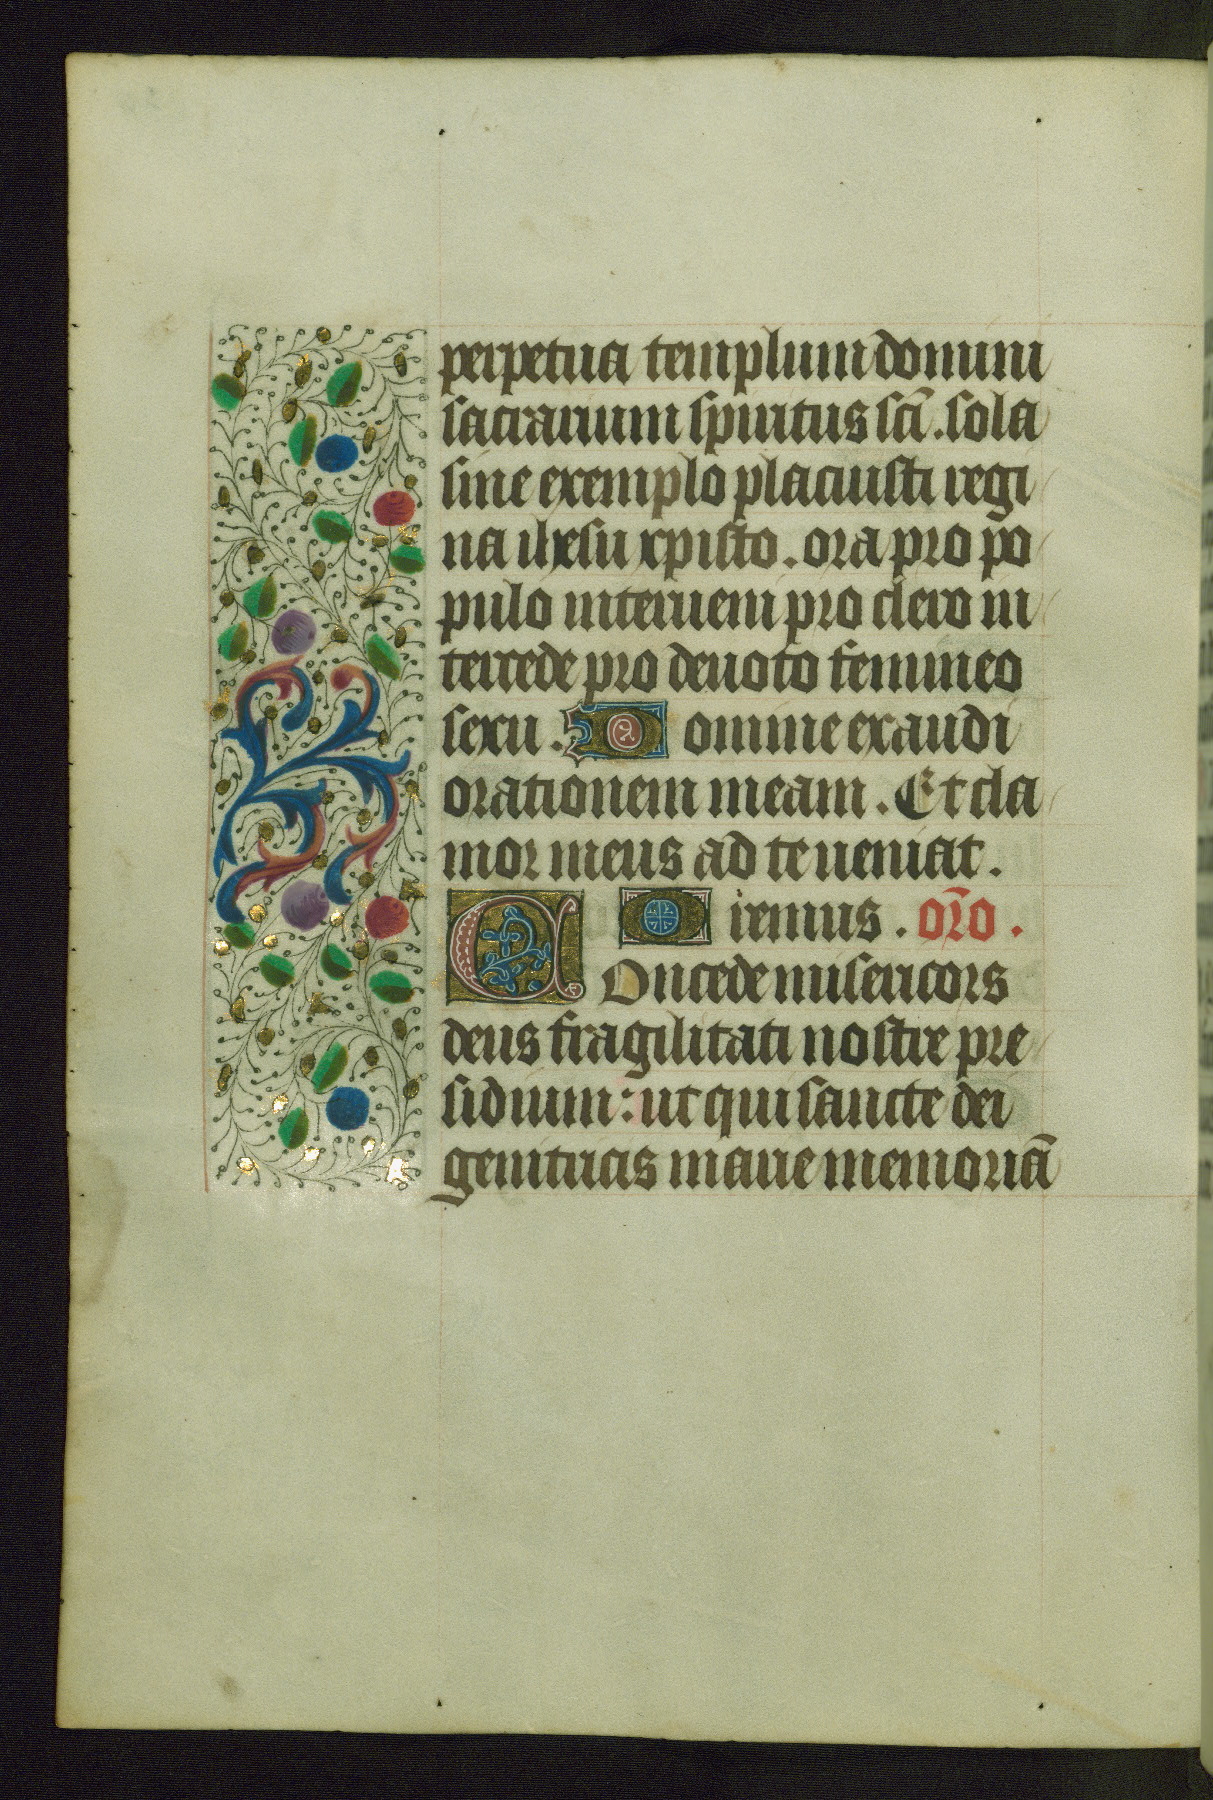 perpetua templum domini
sacrarium spiritus scī . sola
sine exemplo placuisti regi
na ihesu xpisto . ora pro po
pulo interueni pro clero in
tercede pro deuoto femineo
sexu . Domine exaudi
orationem meam . Et cla
mor meus ad te ueniat .
Oremus . orō .
Concede misericors
deus fragilitati nostre pre
sidium : ut qui sancte dei
genitricis marie memoriā